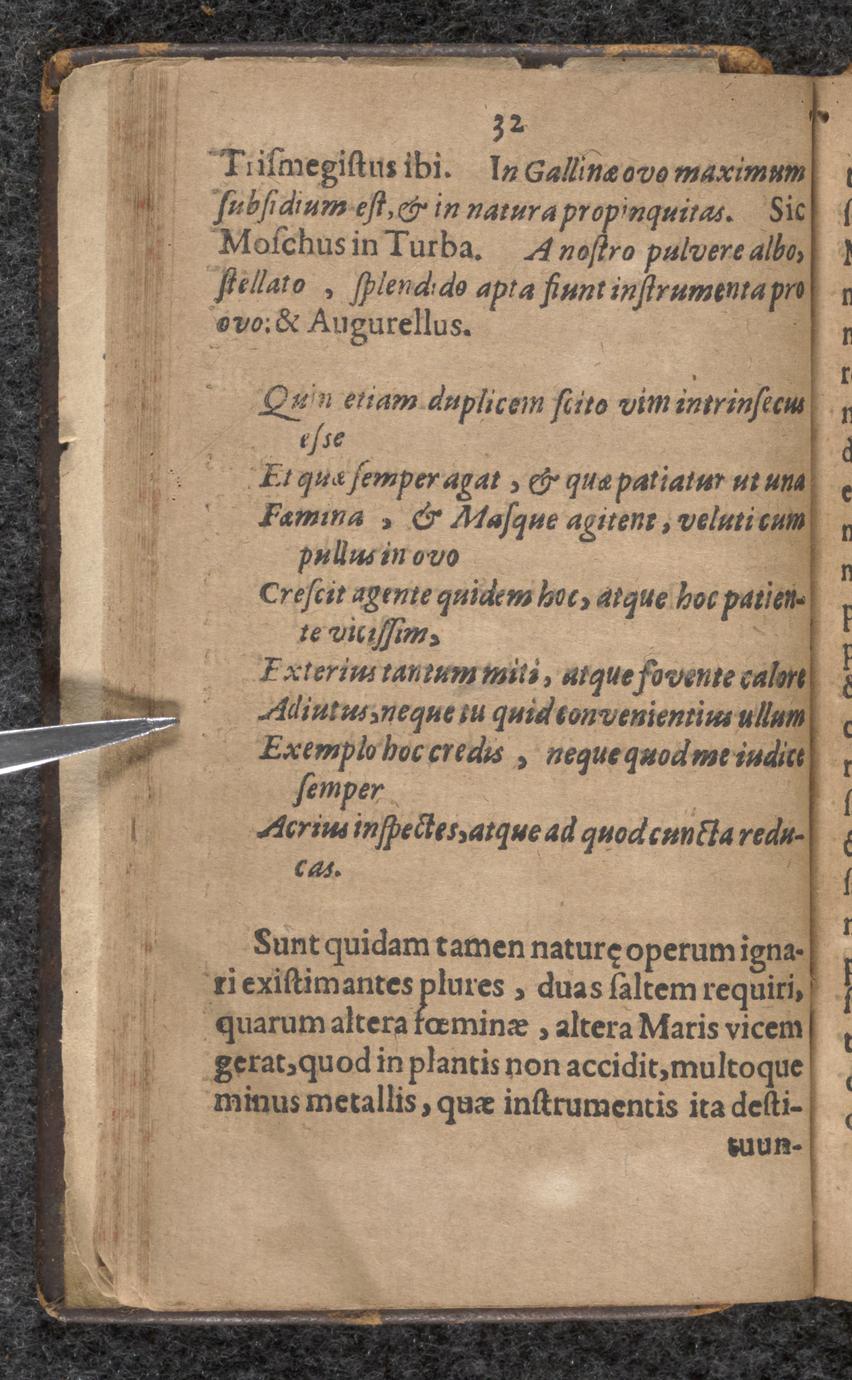 32
Triſmegiſtus ibi. In Gallinæ ovo maximum
ſubſidium eſt, & in natura propinquitas. Sic
Moſchus in Turba. A noſtro pulvere albo,
ſtellato , ſplendido apta fiunt inſtrumenta pro
ovo: & Augurellus.
Quin etiam duplicem ſcito vim intrinſecus
eſse
Et quæ ſemper agat , & quæ patiatur ut una
Fæmina , & Maſque agitent, veluti cum
pullus in ovo
Creſcit agente quidem hoc, atque hoc patien-
te viciſſim,
Exterius tantum miti, atque fovente calore
Adiutus, neque tu quid convenientius ullum
Exemplo hoc credis , neque quod me iudice
ſemper
Acrius inſpectes, atque ad quod cuncta redu-
cas.
Sunt quidam tamen naturę operum igna-
ri exiſtimantes plures , duas ſaltem requiri,
quarum altera fœminæ , altera Maris vicem
gerat, quod in plantis non accidit, multoque
minus metallis, quæ inſtrumentis ita deſti-
tuun-